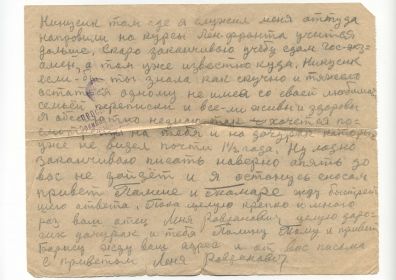 Нинусик там где я служил меня оттуда
направили на курсы Лен-фронта учится
дальше. Скоро заканчиваю учёбу сдам гос-экз-
амен, а там уже известно куда. Нинусик
если бы ты знала как скучно и тяжело
остатся одному не имея со своей любимой
семьей переписки и все-ли живы и здоровы
хочется по-
на тебя и на дочурок которых
уже не видел почти 1½ года. Ну ладно
заканчиваю писать наверно опять до
вас не дойдёт и я останусь
привет и Тамаре жду быстрей-
шего ответа. Пока целую крепко и много
раз ваш отец Леня целую доро-
гих дочурок и тебя Тому и привет
Борису жду ваш адрес и от вас письма
С приветом Леня